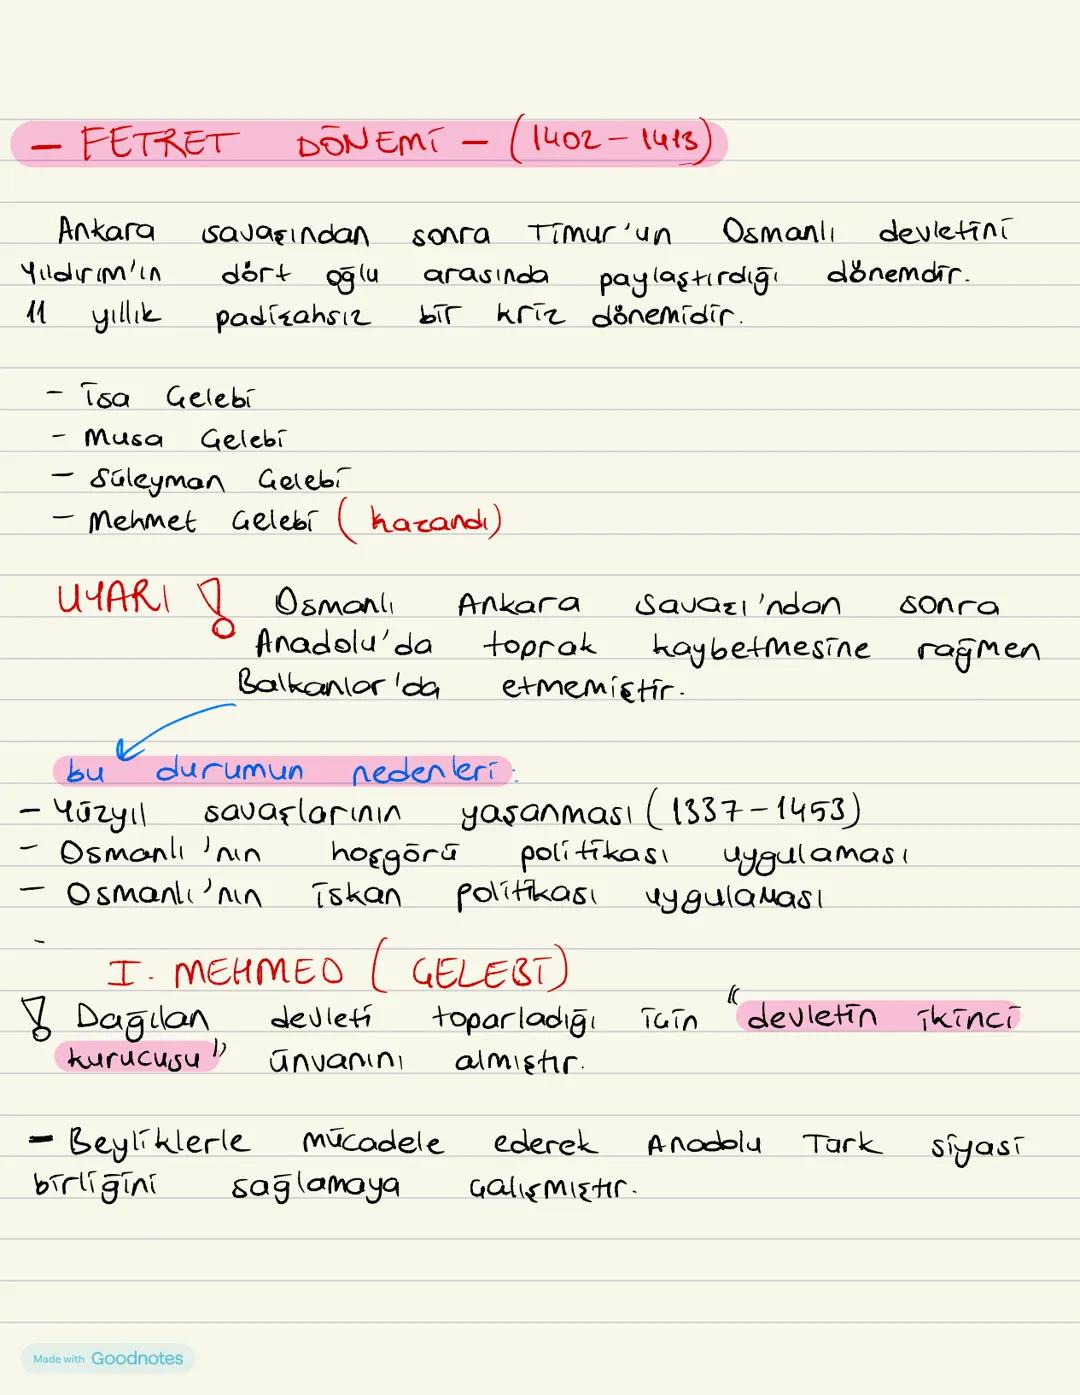 - FETRET DÖNEMİ - (1402-1413)
Ankara savaşından sonra Timur'un Osmanlı devletini
Yıldırım'ın dört oğlu arasında paylaştırdığı dönemdir.
11 yıllık padişahsız bir kriz dönemidir.
- İsa Çelebi
- Musa Çelebi
- Süleyman Çelebi
- Mehmet Çelebi (kazandı)
UYARI ! Osmanlı Ankara savaşı'ndan sonra
Anadolu'da toprak kaybetmesine rağmen
Balkanlar'da etmemiştir.
bu durumun nedenleri:
- Yüzyıl savaşlarının yaşanması (1337-1453)
- Osmanlı'nın hoşgörü politikası uygulaması
- Osmanlı'nın iskan politikası uygulaması
-
I. MEHMED (ÇELEBİ)
! Dağılan devleti toparladığı için "devletin ikinci
kurucusu" ünvanını almıştır.
- Beyliklerle mücadele ederek Anadolu Türk siyasi
birliğini sağlamaya çalışmıştır.
Made with Goodnotes